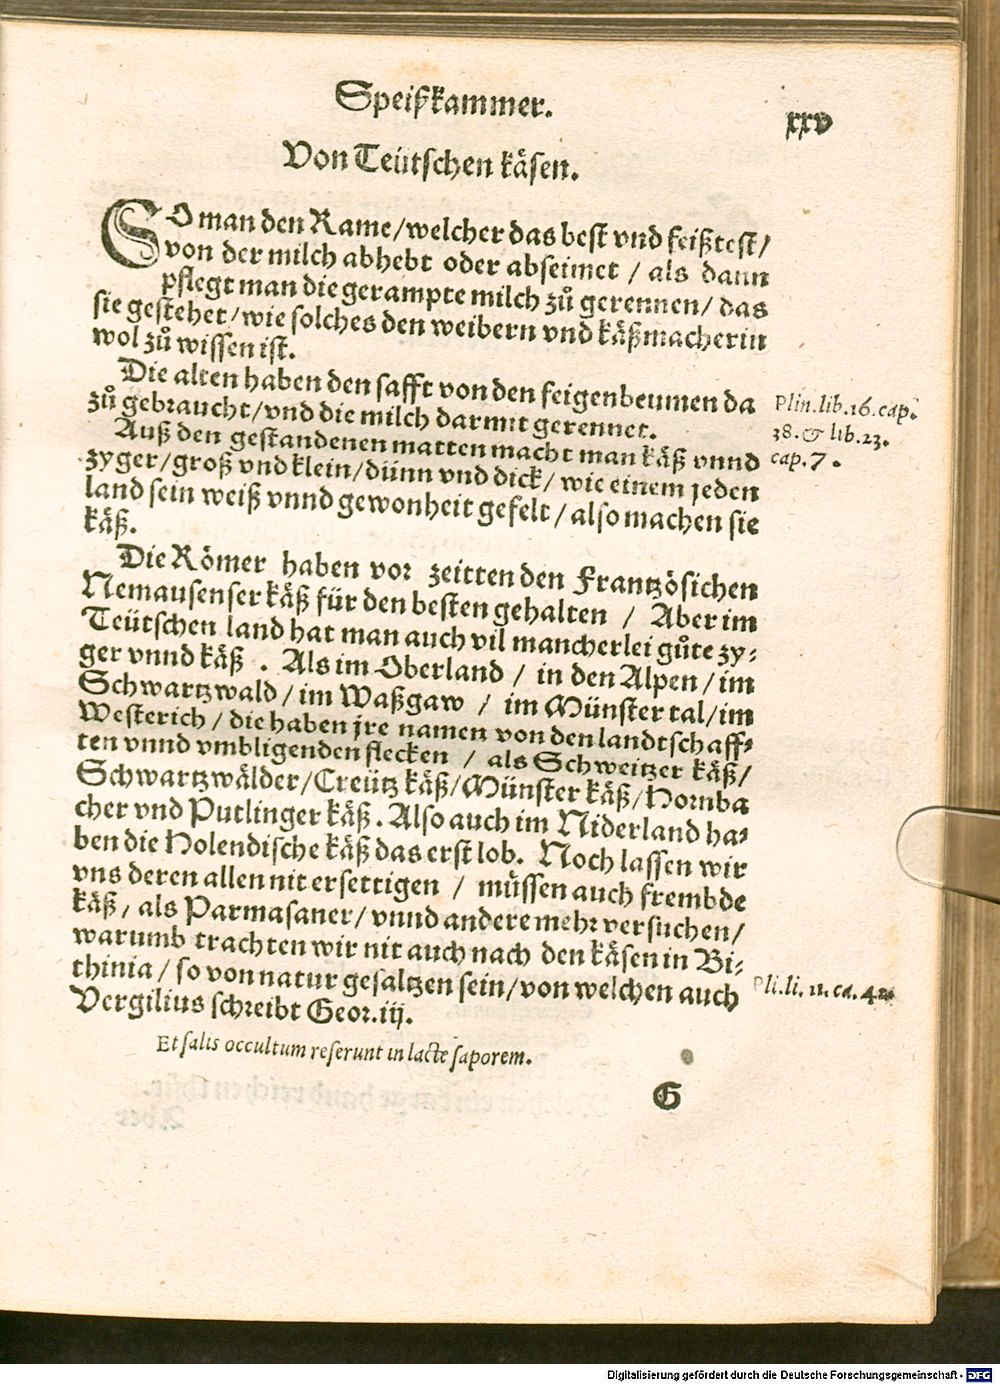 Speißkammer.
xxv
Von Teütschen käsen.
SO man den Rame/welcher das best vnd feißtest/
von der milch abhebt oder abseimet / als dann
pflegt man die gerampte milch zů gerennen/ das
sie gestehet/wie solches den weibern vnd käßmacherin
wol zů wissen ist.
Die alten haben den safft von den feigenbeumen da
zů gebraucht/vnd die milch darmit gerennet.
Plin.lib.16.cap.
38.& lib.23.
cap.7.
Auß den gestandenen matten macht man käß vnnd
zyger/groß vnd klein/dünn vnd dick/ wie einem jeden
land sein weiß vnnd gewonheit gefelt/also machen sie
käß.
Die Römer haben vor zeitten den Frantzösichen
Nemausenser käß für den besten gehalten / Aber im
Teütschen land hat man auch vil mancherlei gůte zy⸗
ger vnnd käß . Als im Oberland / in den Alpen/im
Schwartzwald/im Waßgaw / im Münster tal/im
Westerich/ die haben jre namen von den landtschaff⸗
ten vnnd vmbligenden flecken / als Schweitzer käß/
Schwartzwälder/Creütz käß/Münster käß/Hornba
cher vnd Putlinger käß. Also auch im Niderland ha⸗
ben die Holendische käß das erst lob. Noch lassen wir
vns deren allen nit ersettigen / müssen auch frembde
käß/ als Parmasaner/ vnnd andere mehr versuchen/
warumb trachten wir nit auch nach den käsen in Bi⸗
thinia/so von natur gesaltzen sein/von welchen auch
Vergilius schreibt Geor.iij.
Pli.li. 11. ca. 42.
Et salis occultum reserunt in lacte saporem.
G
Digitalisierung gefördert durch die Deutsche Forschungsgemeinschaft - DFG